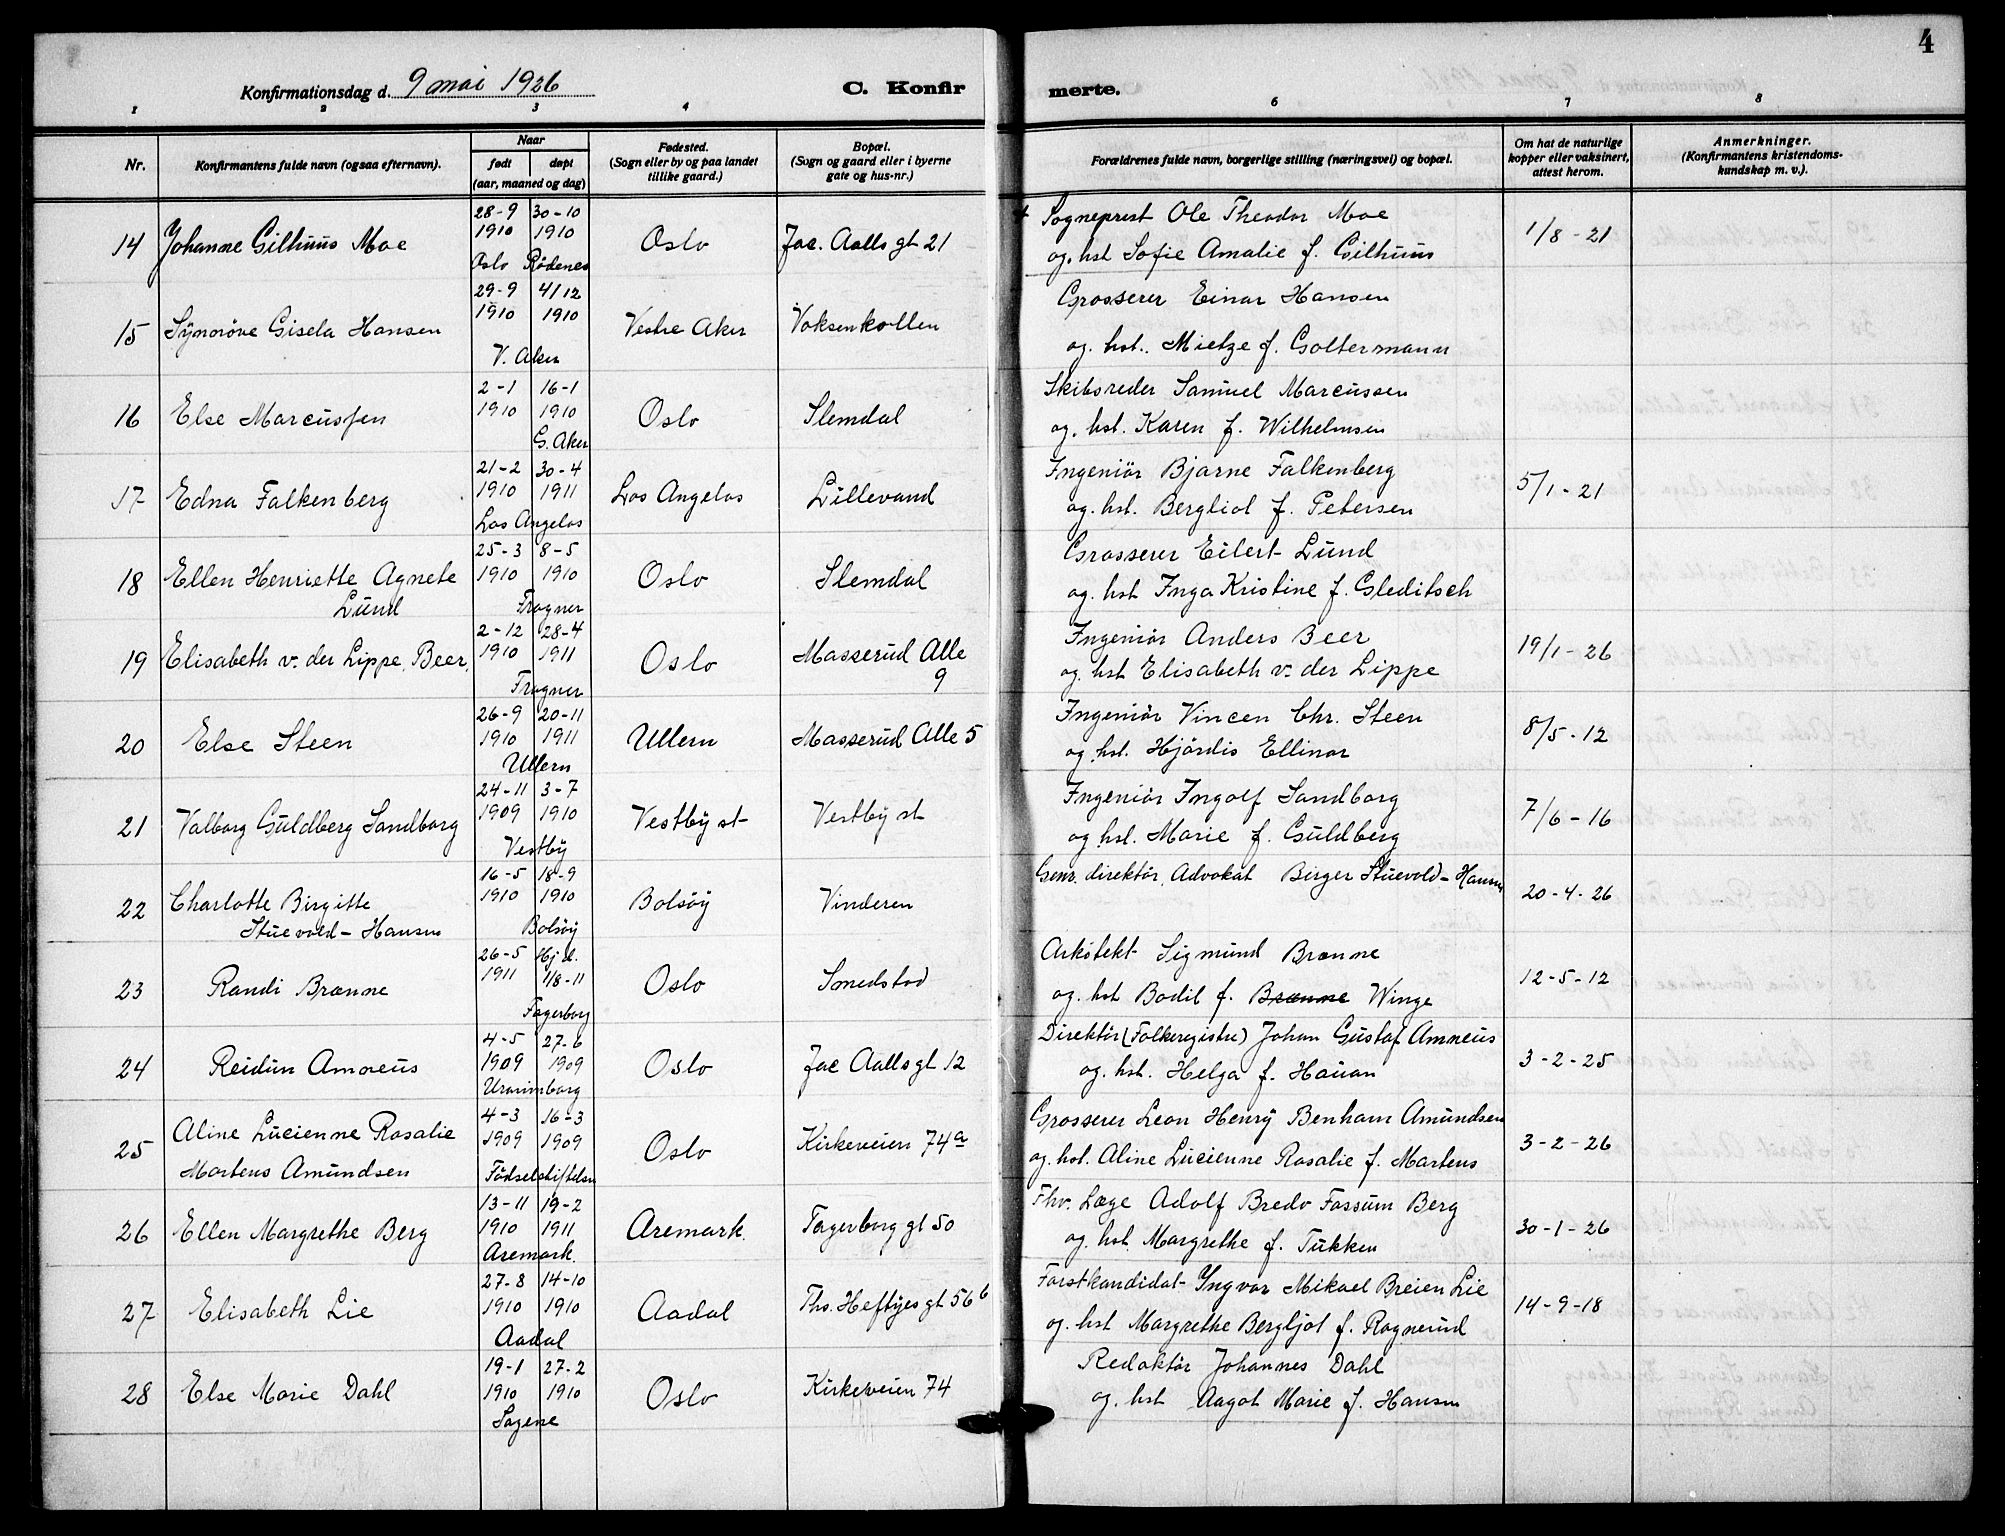 4
Konfirmationsdag d. 9 mai 1926
C. Konfirmerte.
1 2 3 4 6 7 8
Nr.
Konfirmantens fulde navn (ogsaa efternavn).
Naar
født døpt
(aar, maaned og dag)
Fødested.
(Sogn eller by og paa landet
tillike gaard.)
Bopæl.
(Sogn og gaard eller i byerne
gate og hus-nr.)
Forældrenes fulde navn, borgerlige stilling (næringsvei) og bopæl.
Om hat de naturlige
kopper eller vaksinert,
attest herom.
Anmerkninger.
(Konfirmantens kristendoms-
kundskap m. v.).
28-9 30-10
1910 1910
14 Johanne Gilhuus Moe Oslo Jac. Aalls gt 21
Oslo Rødenes
+ Sogneprest Ole Theodor Moe
og. hst Sofie Amalie f. Gilhuus
1/8 - 21
29-9 4/12
1910 1910
15 Synnöve Gisela Hansen Vestre Aker Voksenkollen
V. Aker
Grosserer Einar Hansen
og. hst. Mietze f. Goltermann
2-1 16-1
1910 1910
16 Else Marcussen Oslo Slemdal
G. Aker
Skibsreder Samuel Marcussen
og. hst. Karen f. Wilhelmsen
21-2 30-4
1910 1911
17 Edna Falkenberg Los Angelos Lillevand
Los Angelos
Ingeniör Bjarne Falkenberg
og. hst. Bergliot f. Petersen
5/1 - 21
25-3 8-5
1910 1910
18 Ellen Henriette Agnete
Lund Oslo Slemdal
Frogner
Grosserer Eilert Lund
og. hst Inga Kristine f. Gleditsch
2-12 28-4
1910 1911
19 Elisabeth v. der Lippe Beer Oslo Masserud Alle
9
Frogner
Ingeniör Anders Beer
og. hst Elisabeth v. der Lippe
19/1 - 26
26-9 20-11
1910 1911
20 Else Steen Ullern Masserud Alle 5
Ullern
Ingeniör Vincen Chr. Steen
og. hst. Hjördis Ellinor
8/5 - 12
24-11 3-7
1909 1910
21 Valborg Guldberg Sandborg Vestby st Vestby st
Vestby
Ingeniör Ingolf Sandborg
og. hst. Marie f. Guldberg
7/6 - 16
16-5 18-9
1910 1910
22 Charlotte Birgitte
Stuevold-Hansen Bolsöy Vinderen
Bolsöy
Genr. direktör, Advokat Birger Stuevold-Hansen
20-4-26
26-5 Hj d.
1911 1/8-11
23 Randi Brænne Oslo Smedstad
Fagerborg
Arkitekt Sigmund Brænne
og. hst Bodil f. Brænne Winge
12-5-12
4-5 27-6
1909 1909
24 Reidun Amneus Oslo Jac Aalls gt 12
Uranienborg
Direktör (Folkeregistre) Johan Gustaf Amneus
og. hst. Helga f. Hauan
3-2-25
4-3 16-3
1909 1909
25 Aline Lucienne Rosalie
Martens Amundsen Oslo Kirkeveien 74a
Födselsstiftelsen
Grosserer Leon Henry Benham Amundsen
og. hst. Aline Lucienne Rosalie f. Martens
3-2-26
13-11 19-2
1910 1911
26 Ellen Margrethe Berg Aremark. Fagerborg gt 50
Aremark.
Fhv. Læge Adolf Bredo Fossum Berg
og. hst. Margrethe f. Tukken
30-1-26
27-8 14-10
1910 1910
27 Elisabeth Lie Aadal Ths. Heftyes gt 56 b
Aadal
Forstkandidat Yngvar Mikael Breien Lie
og. hst Margrethe Bergljot f. Ragnerud
14-9-18
19-1 27-2
1910 1910
28 Else Marie Dahl Oslo Kirkeveien 74
Sagene
Redaktör Johannes Dahl
og. hst Aagot Marie f. Hansen